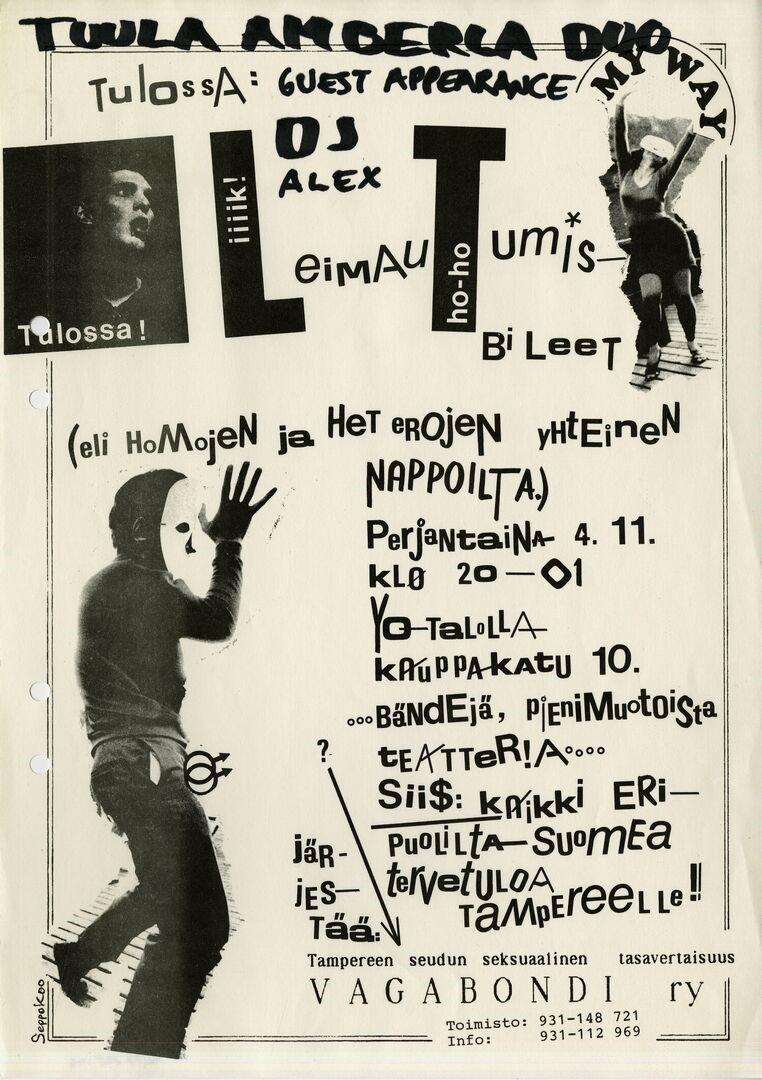 TUULA AMBERLA DUO
TulossA: GUEST APPEARANCE
MY WAY
DJ
ALEX
iiiik!
LeimAuTumis-
ho-ho
Tulossa!
BiLeeT
(eli HoMojeN ja HeT eROjeN yHtEineN
NAPPOILTA.)
PerjaNtaiNA 4. 11.
kLØ 20-01
YO-TaLoLLA
kAuPPAkATU 10.
...BäNdEjä, pieniMuotoista
tEATTeR!A....
?
Sii$: kAikki ERi-
PuoLiLtA-SUOmEA
tervetULOA
TaMpEreeLLe!!
jäR-
jES-
Tää:
Tampereen seudun seksuaalinen tasavertaisuus
VAGABONDI ry
Toimisto: 931-148 721
Info: 931-112 969
SeppoKoo